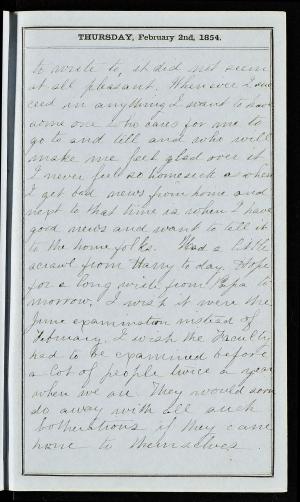 THURSDAY, February 2nd, 1854.
to write to, it did not seem
at all pleasant. Whenever I suc
ceed in anything I want to have
some one who cares for me to
go to and tell and who will
make me feel glad over it
I never feel so homesick as when
I get bad news from home and
next to that time is when I have
good news and want to tell it
to the home folks. Had a little
scrawl from Harry to day. Hope
for a long  from Papa to
morrow. I wish it were the
June examination instead of
February. I wish the Faculty
had to be examined before
a lot of people twice a year
when we are. They would soon
do away with all such
botherations if they came
home to themselves.